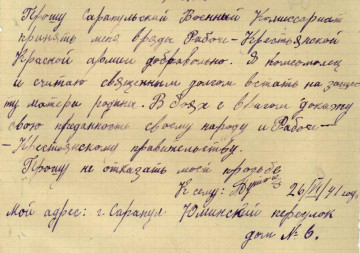 Прошу Сарапульский Военный Комиссариат
принять меня вряды Рабоче-Крестьянской
Красной армии добравольно. Я комсомолец
и считаю священным долгом встать на защи-
ту матери родины. В боях с врагом докажу
свою преданность своему народу и Рабоче-
-Крестьянскому правительству.
Прошу не отказать моей прозьбе
К сему: 26/VI/41 год.
Мой адрес: г. Сарапул Юминский переулок
дом № 6.